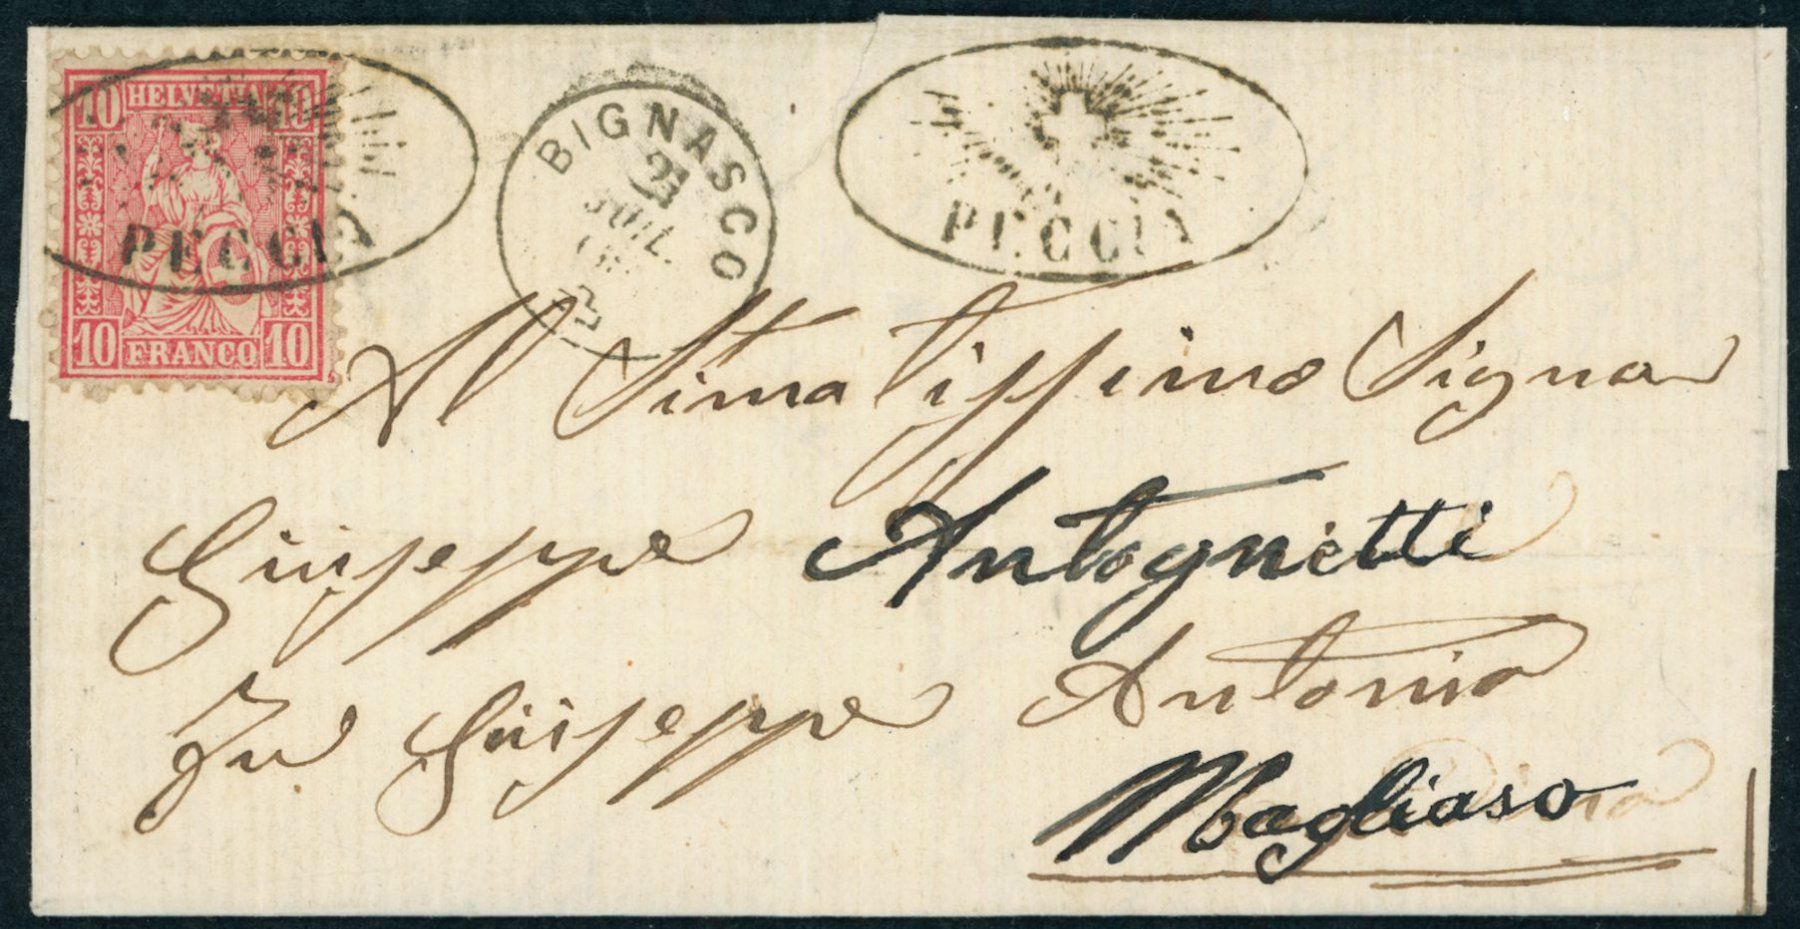 10 HELVETIA 10
PECCIA
10 FRANCO 10
BIGNASCO
JUIL.
PECCIA
Al Stimatissimo Signor
Giuseppe Antognetti
Fu Giuseppe Antonio
Magliaso